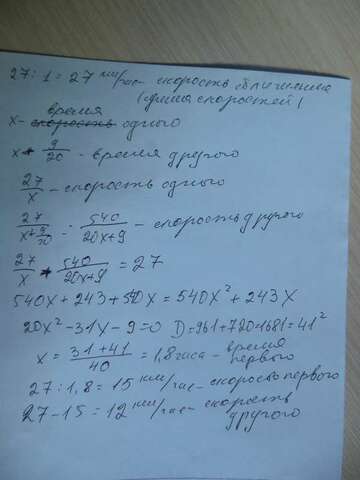 27 : 1 = 27 км/час - скорость сближения
(сумма скоростей)
время
х - скорость одного
х + 9/20 - время другого
27/х - скорость одного
27/(х+9/20) = 540/(20х+9) - скорость другого
27/х + 540/(20х+9) = 27
540х + 243 + 540х = 540х² + 243х
20х² - 31х - 9 = 0 D = 961 + 720 = 1681 = 41²
х = (31+41)/40 = 1,8 часа - время первого
27 : 1,8 = 15 км/час - скорость первого
27 - 15 = 12 км/час - скорость другого